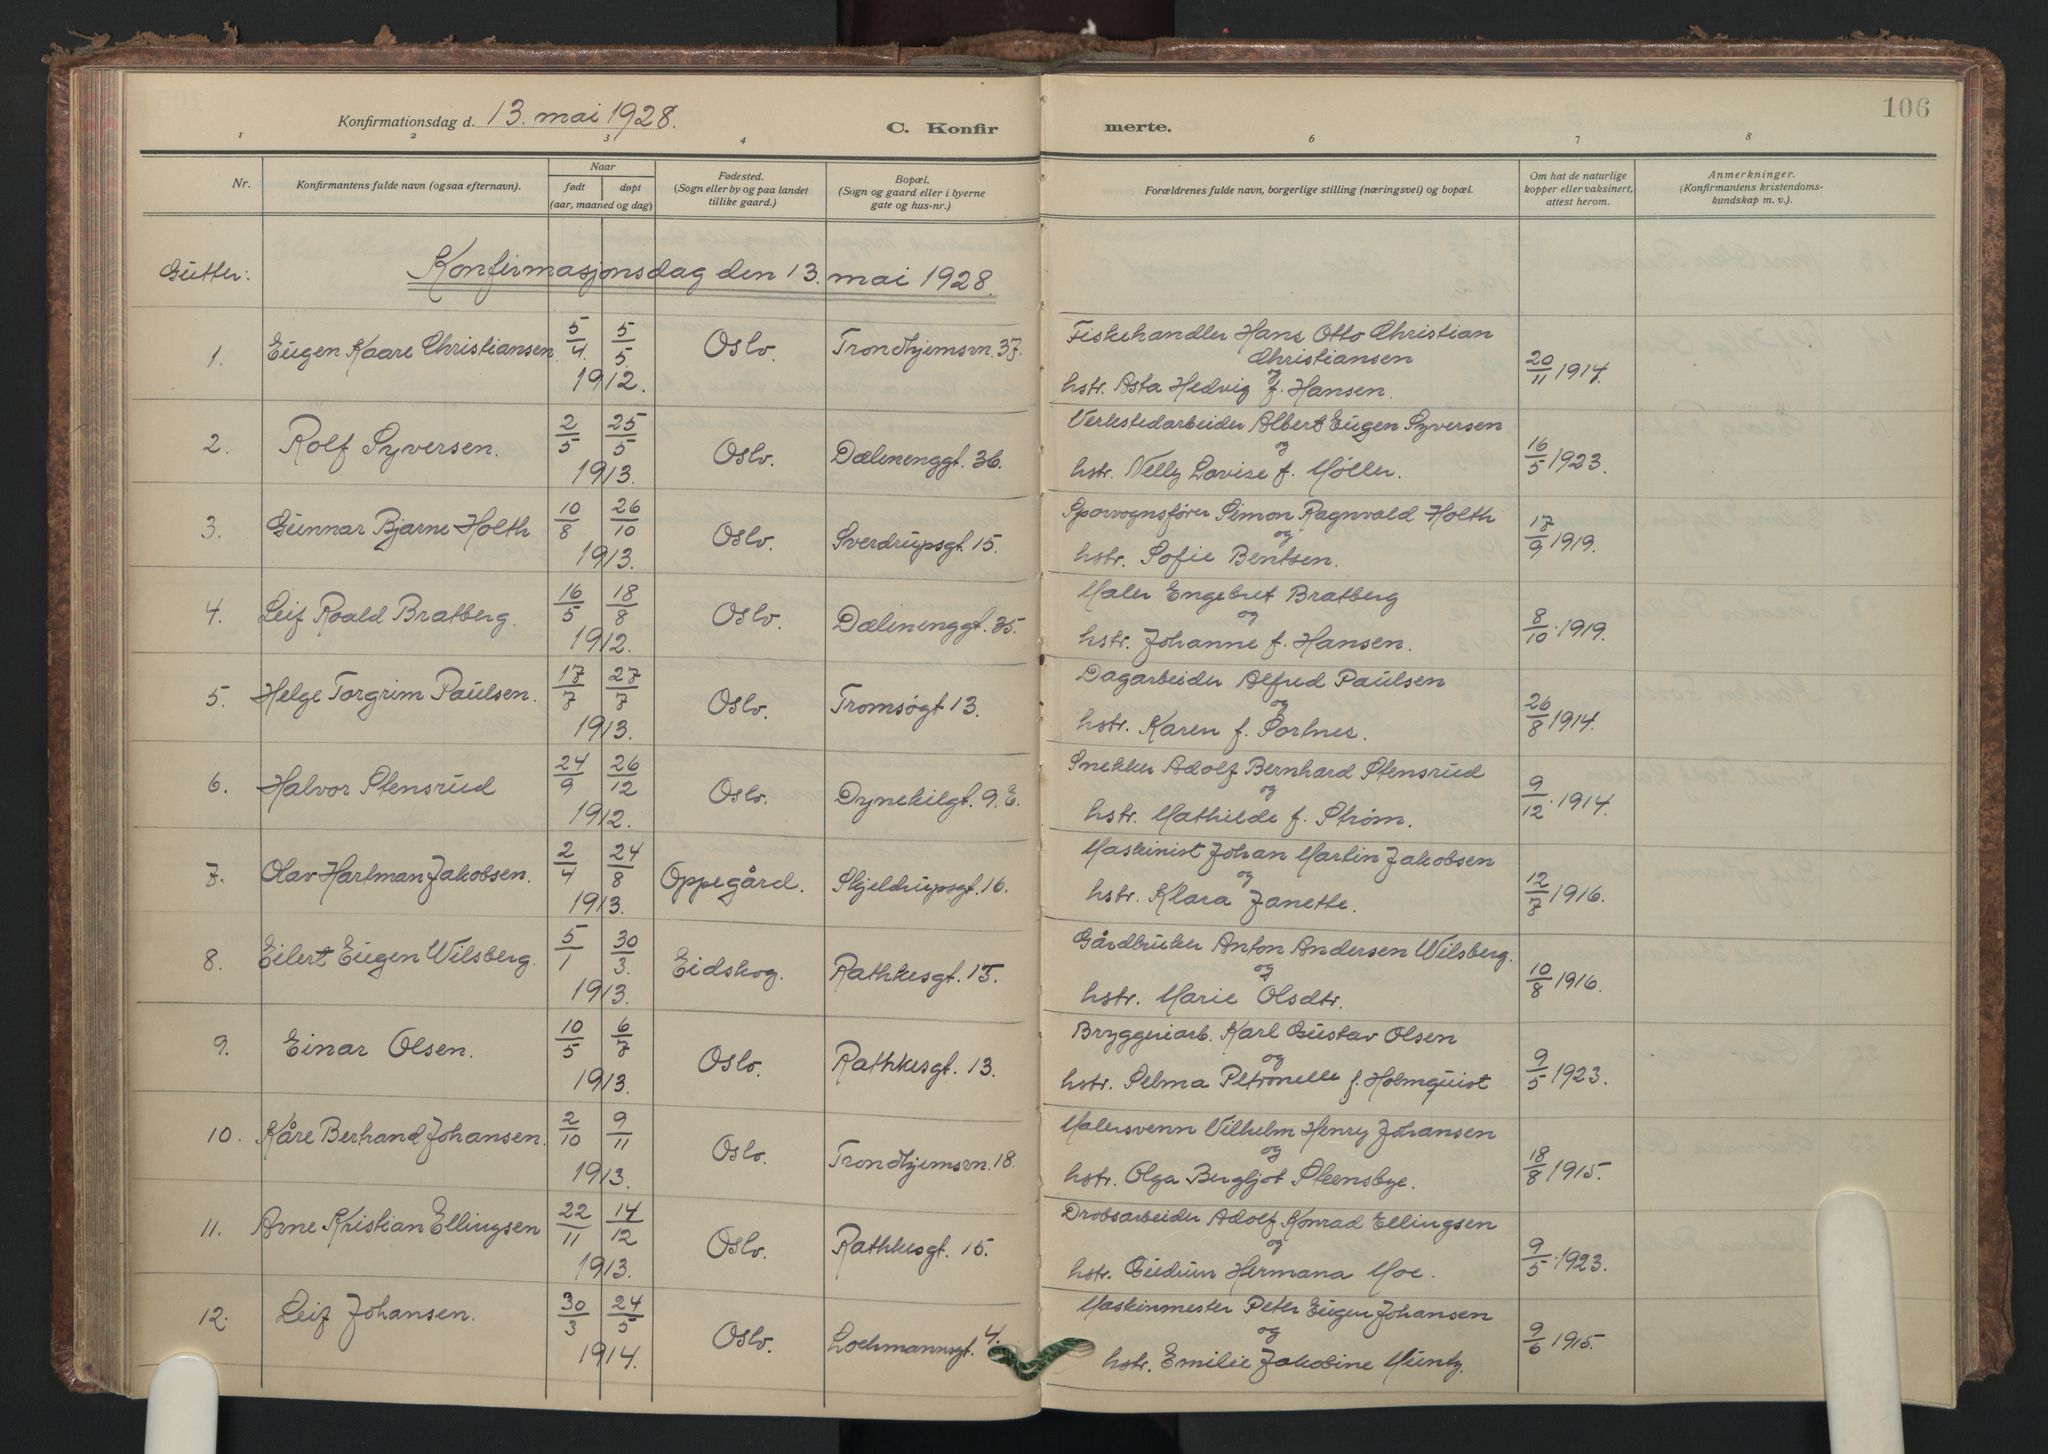 106
Konfirmationsdag d. 13. mai 1928.
C. Konfirmerte.
1 2 3 4 6 7 8
Nr. Konfirmantens fulde navn (ogsaa efternavn). Naar født døpt (aar, maaned og dag) Fødested. (Sogn eller by og paa landet tillike gaard.) Bopæl. (Sogn og gaard eller i byerne gate og hus-nr.) Forældrenes fulde navn, borgerlige stilling (næringsvei) og bopæl. Om hat de naturlige kopper eller vaksinert, attest herom. Anmerkninger. (Konfirmantens kristendomskundskap m. v.).
Gutter: Konfirmasjonsdag den 13. mai 1928.
1. Eugen Kaare Christiansen 5/4 5/5 1912. Oslo. Trondhjemsvn. 37. Fiskehandler Hans Otto Christian Christiansen
og
hstr. Asta Hedvig f. Hansen. 20/11 1914.
2. Rolf Syversen. 2/5 25/5 1913. Oslo. Dælenenggt. 36. Verkstedarbeider Albert Eugen Syversen
og
hstr. Nelly Lovise f. Møller. 16/5 1923.
3. Gunnar Bjarne Holth 10/8 26/10 1913. Oslo. Sverdrupsgt. 15. Sporvognsfører Simon Ragnvald Holth
og
hstr. Sofie Bentsen. 17/9 1919.
4. Leif Roald Bratberg. 16/5 18/8 1912. Oslo. Dælenenggt. 35. Maler Engebret Bratberg
og
hstr. Johanne f. Hansen. 8/10 1919.
5. Helge Torgrim Paulsen. 17/7 27/7 1913. Oslo. Tromsøgt 13. Dagarbeider Alfred Paulsen
og
hstr. Karen f. Sortnes. 26/8 1914.
6. Halvor Stensrud 24/9 26/12 1912. Oslo. Dynekilgt. 9. E. Snekker Adolf Bernhard Stensrud
og
hstr. Mathilde f. Strøm. 9/12 1914.
7. Olav Hartman Jakobsen. 2/4 24/8 1913. Oppegård. Skjeldrupsgt. 16. Maskinist Johan Martin Jakobsen
og
hstr. Klara Janette. 12/7 1916.
8. Eilert Eugen Wilsberg. 5/1 30/3. 1913. Eidskog. Rathkesgt. 15. Gårdbruker Anton Andersen Wilsberg.
og
hstr. Marie Olsdtr. 10/8 1916.
9. Einar Olsen. 10/5 6/7 1913. Oslo. Rathkesgt. 13. Bryggeriarb. Karl Gustav Olsen
og
hstr. Selma Petronelle f. Holmquist 9/5 1923.
10. Kåre Bertrand Johansen. 2/10 9/11 1913. Oslo. Trondhjemsvn. 18. Malersvenn Vilhelm Henry Johansen
og
hstr. Olga Bergljot Steensbye. 18/8 1915.
11. Arne Kristian Ellingsen 22/11 14/12 1913. Oslo. Rathkesgt. 15. Drobsarbeider Adolf Konrad Ellingsen
og
hstr. Gudrun Hermana Moe. 9/5 1923.
12. Leif Johansen. 30/3 24/5 1914. Oslo. Lochmannsgt. 4. Maskinmester Peter Eugen Johansen
og
hstr. Emilie Jakobine Müntz. 9/6 1915.